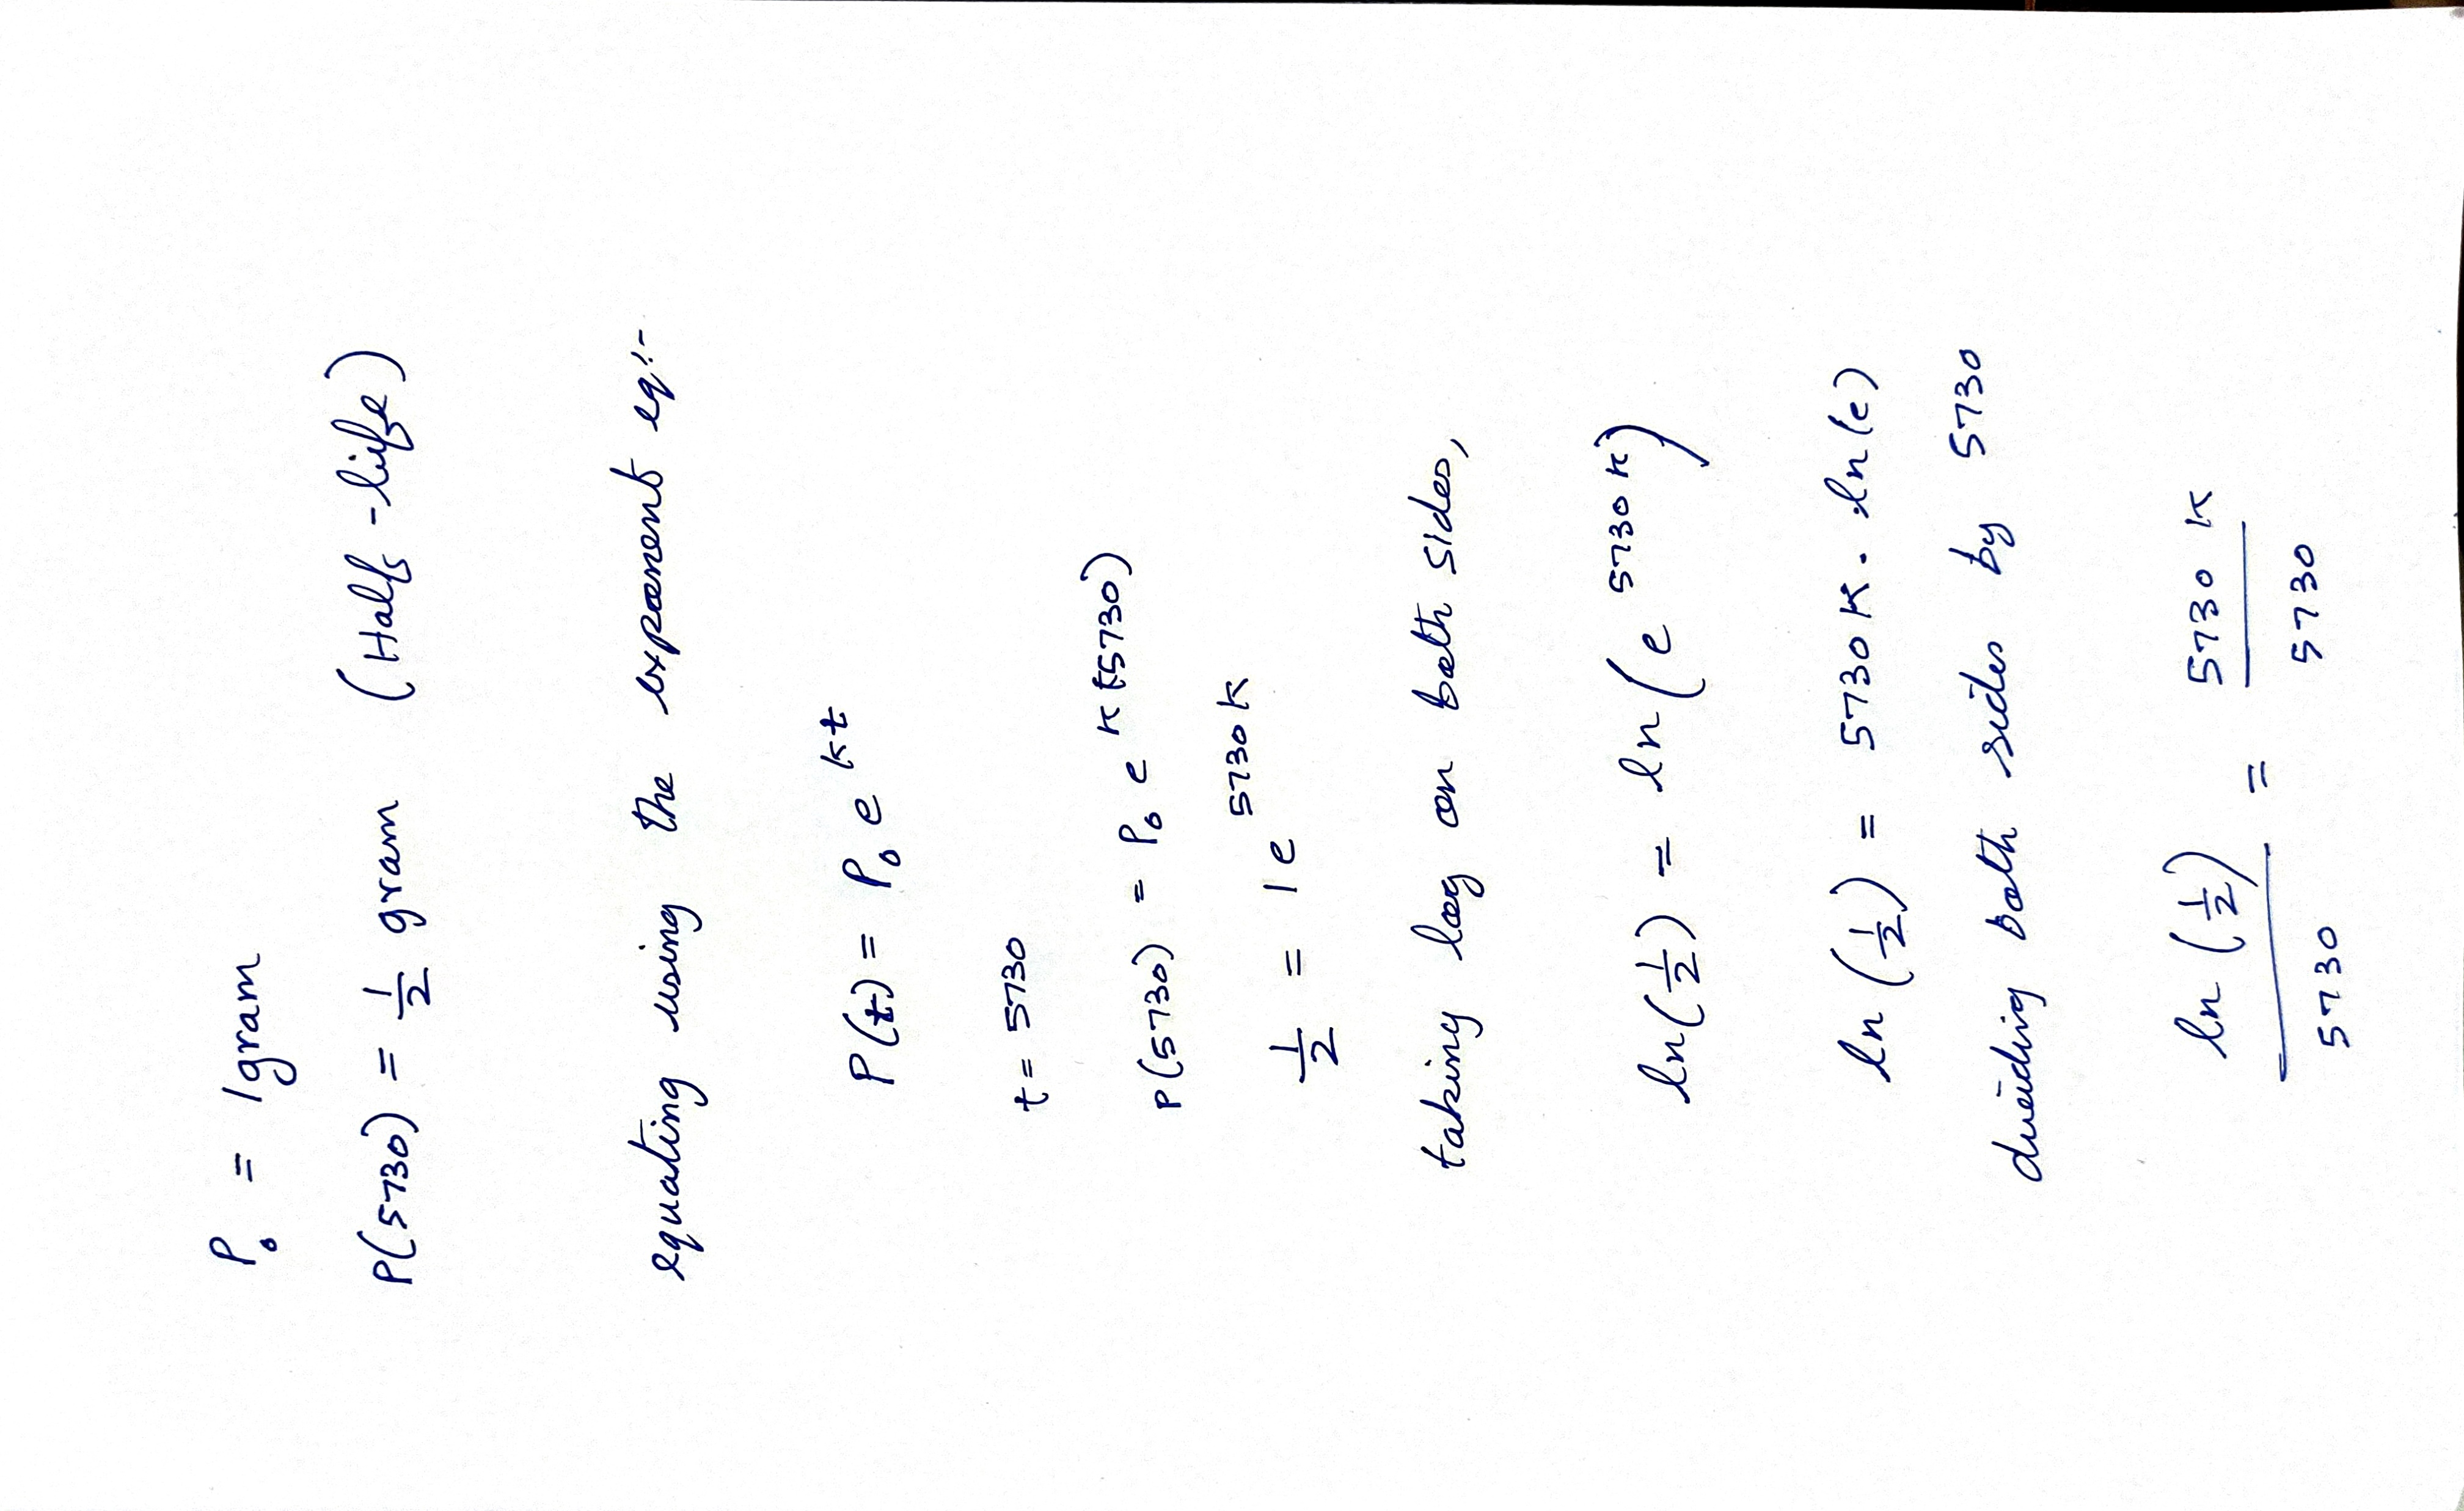 P₀ = 1gram
P(5730) = 1/2 gram (Half-life)
equating using the exponent eq:-
P(t) = P₀ e^kt
t = 5730
P(5730) = P₀ e^k(5730)
1/2 = 1e^5730k
taking log on both sides,
ln(1/2) = ln(e^5730k)
ln(1/2) = 5730k. ln(e)
dividing both sides by 5730
ln(1/2)/5730 = 5730k/5730